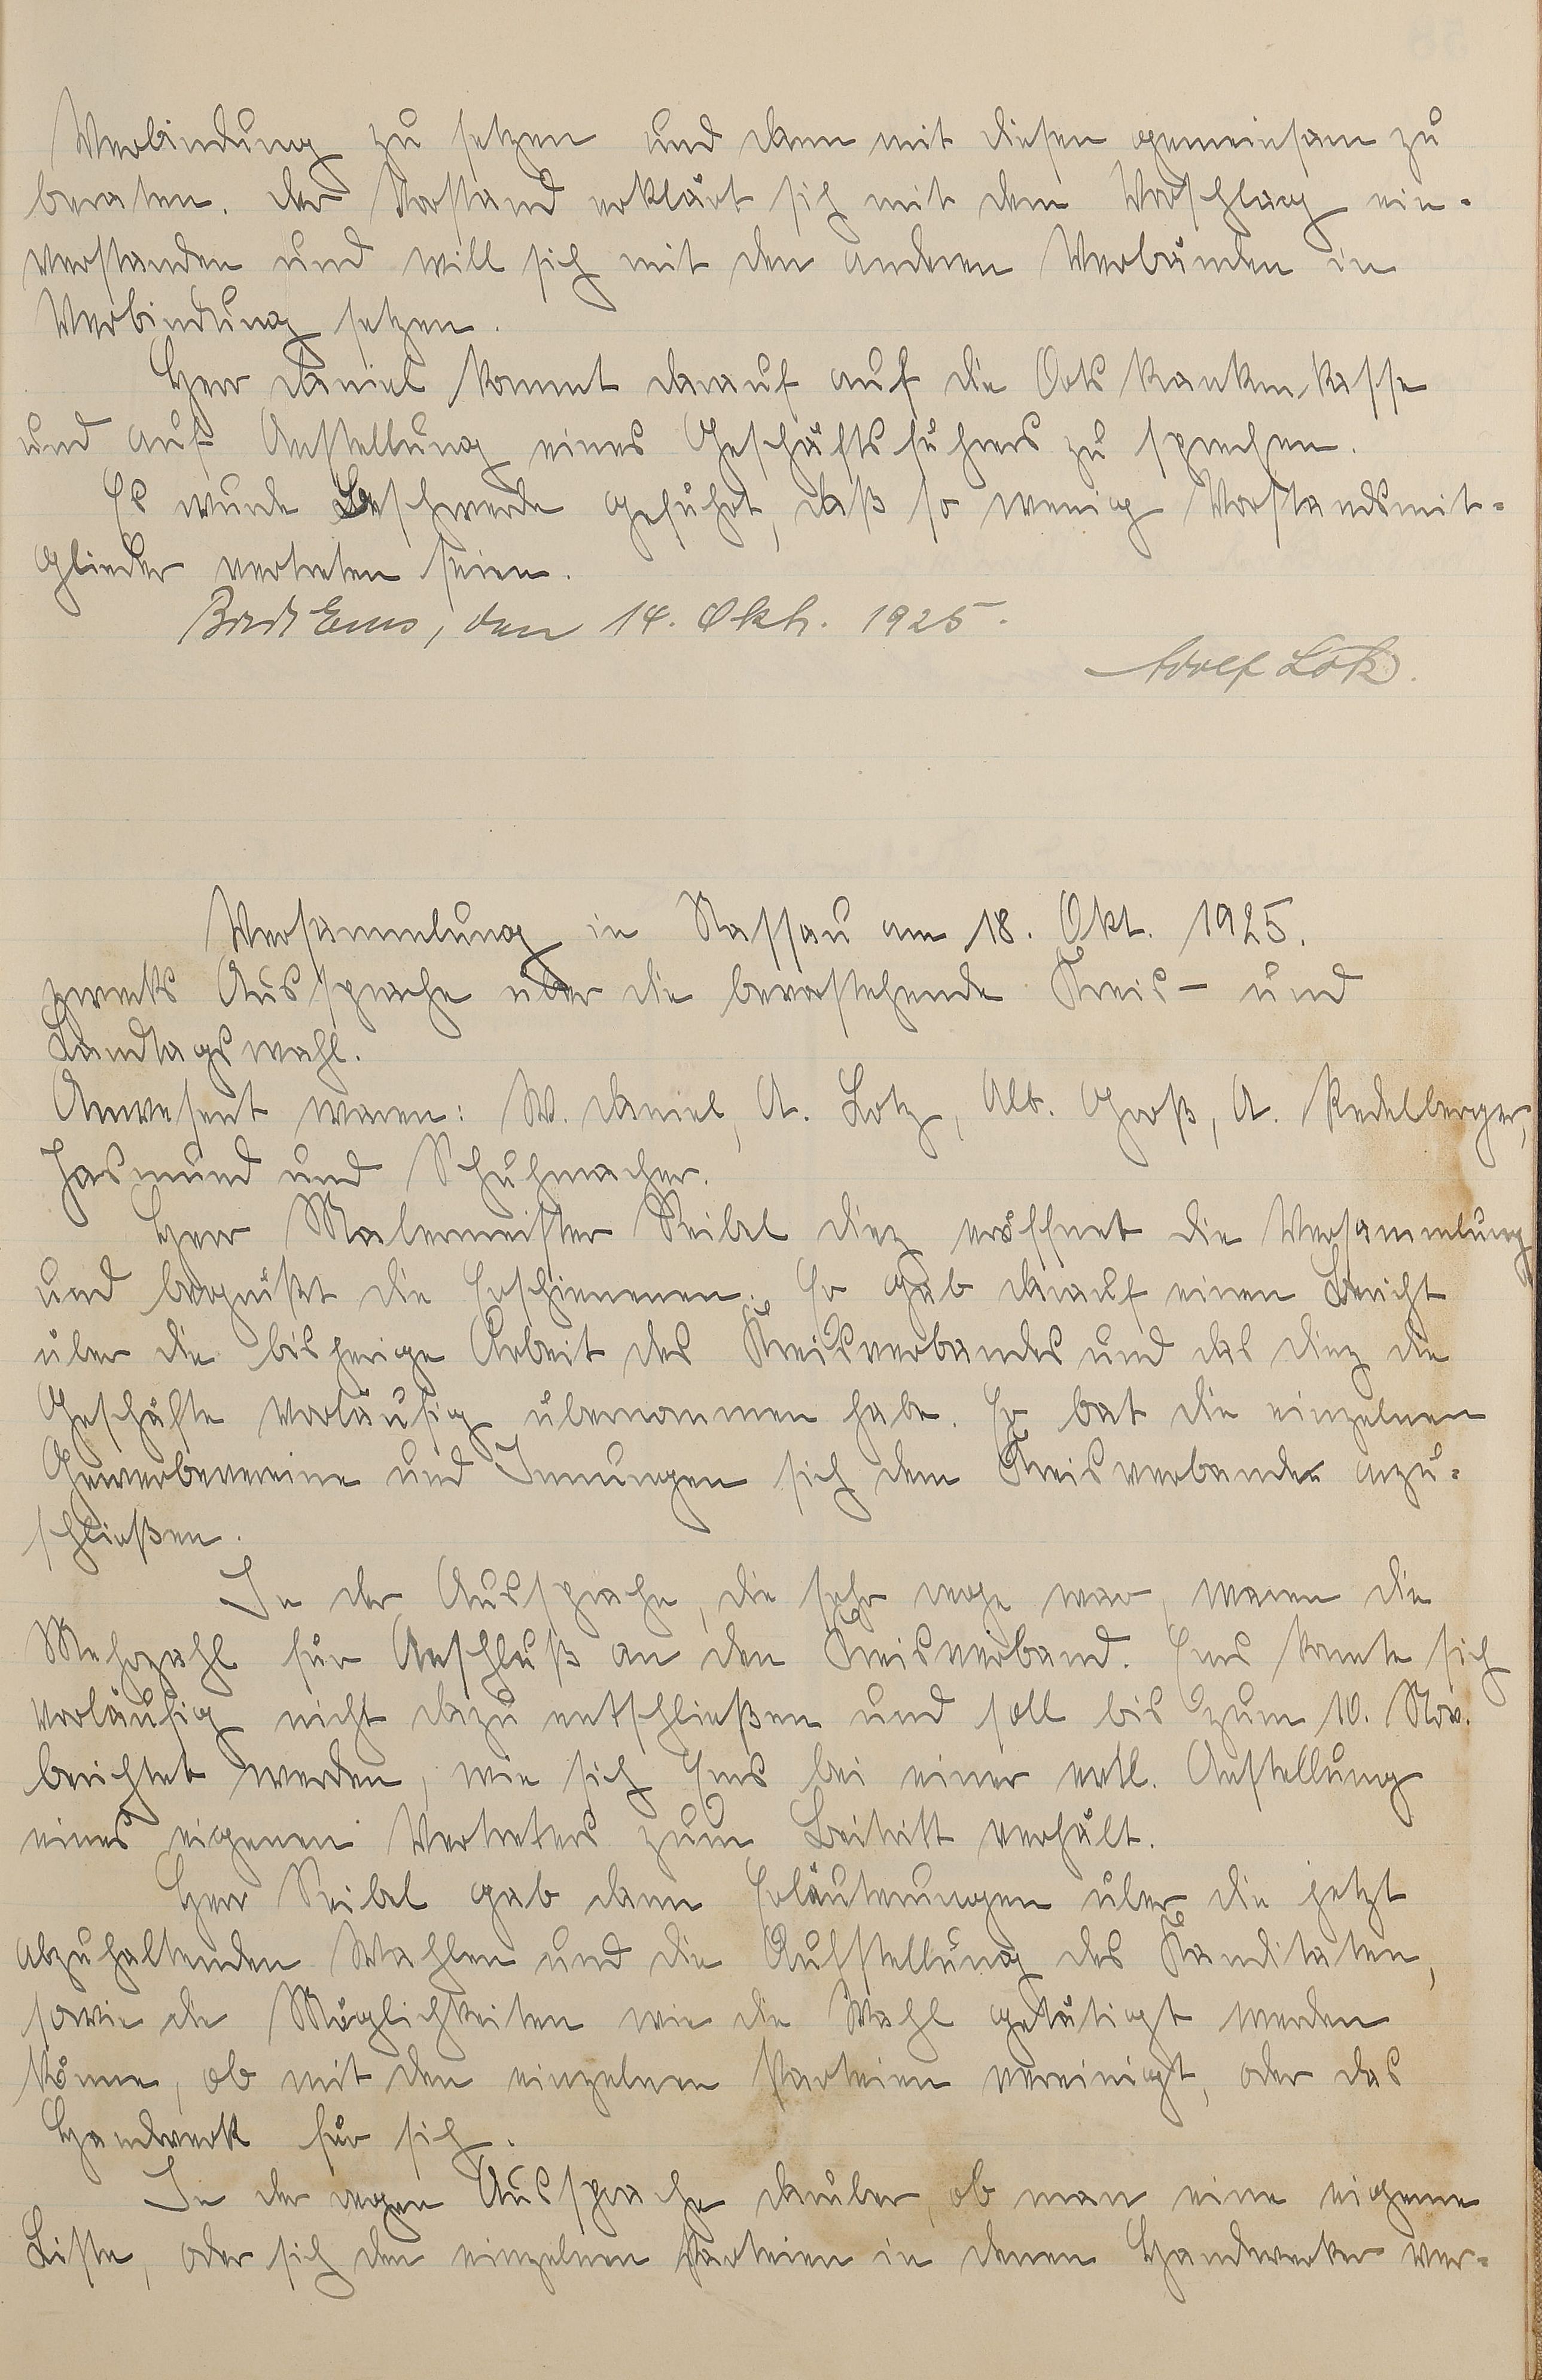 Verbindung zu setzen und dann mit diesen gemeinsam zu
beraten. Der Vorstand erklärt sich mit dem Vorschlag ein-
verstanden und will sich mit den anderen Verbänden in
Verbindung setzen.
Herr Daniel kommt darauf auf die Ortskrankenkasse
und auf Anstellung eines Geschäftsführers zu sprechen.
Es wurde Beschwerde geführt, daß so wenig Vorstandsmit-
glieder vertreten seien.
Bad Ems, den 14. Okt. 1925.
Adolf Lotz.
Versammlung in Nassau am 18. Okt. 1925.
zwecks Aussprache über die bevorstehende Kreis- und
Landtagswahl.
Anwesent waren: W. Daniel, A. Lotz, Alb. Groß, A. Redelberger,
Jasmund und Schuhmacher.
Herr Malermeister Seibel Diez eröffnet die Versammlung
und begrüßt die Erschienenen. Er gab darauf einen Bericht
über die bisherige Arbeit des Kreisverbandes und das Diez die
Geschäfte vorläufig übernommen habe. Er bat die einzelnen
Gewerbevereine und Innungen sich dem Kreisverbande anzu-
schließen.
In der Aussprache, die sehr rege war, waren die
Mehrzahl für Anschluß an den Kreisverband. Ems konnte sich
vorläufig nicht dazu entschließen und soll bis zum 10. Nov.
berichtet werden, wie sich Ems bei einer evtl. Anstellung
eines eigenen Vertreters zum Beitritt verhält.
Herr Seibel gab dann Erläuterungen über die jetzt
abzuhaltenden Wahlen und die Aufstellung des Kanditaten,
sowie die Möglichkeiten wie die Wahl getätigt werden
könne, ob mit den einzelnen Parteien vereinigt, oder das
Handwerk für sich.
In der regen Aussprache darüber, ob man eine eigene
Liste, oder sich den einzelnen Parteien in denen Handwerker ver-